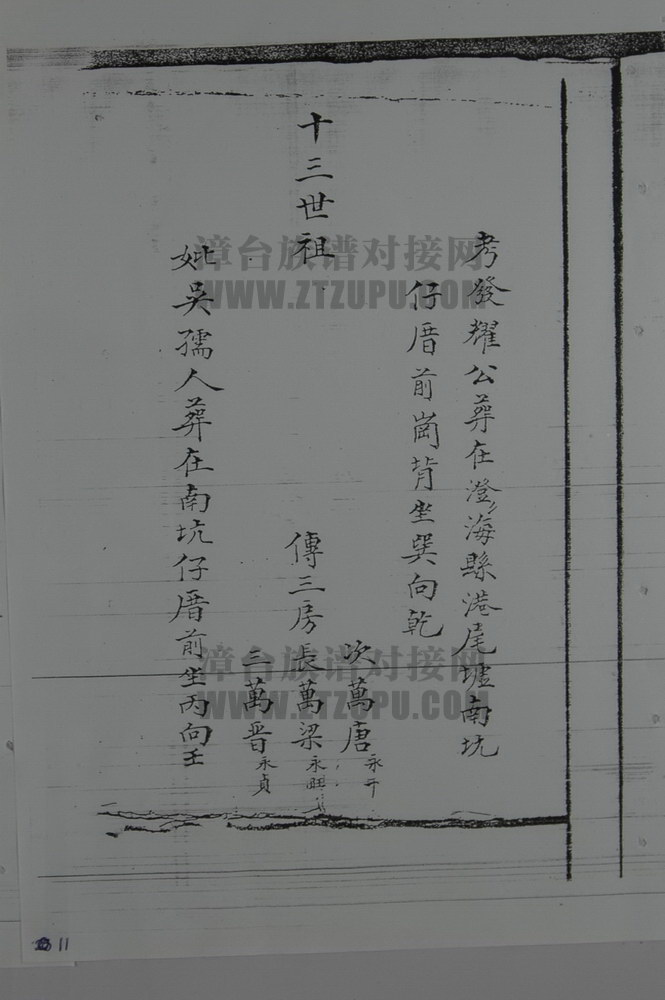 十三世祖
考發耀公葬在澄海縣港尾墟南坑
仔厝前崗背坐巽向乾
次萬唐
永干
傳三房長萬梁
永旺
三萬晋
永貞
妣吳孺人葬在南坑仔厝前坐丙向壬
漳台族谱对接网
WWW.ZTZUPU.COM
漳台族谱对接网
WWW.ZTZUPU.COM
11